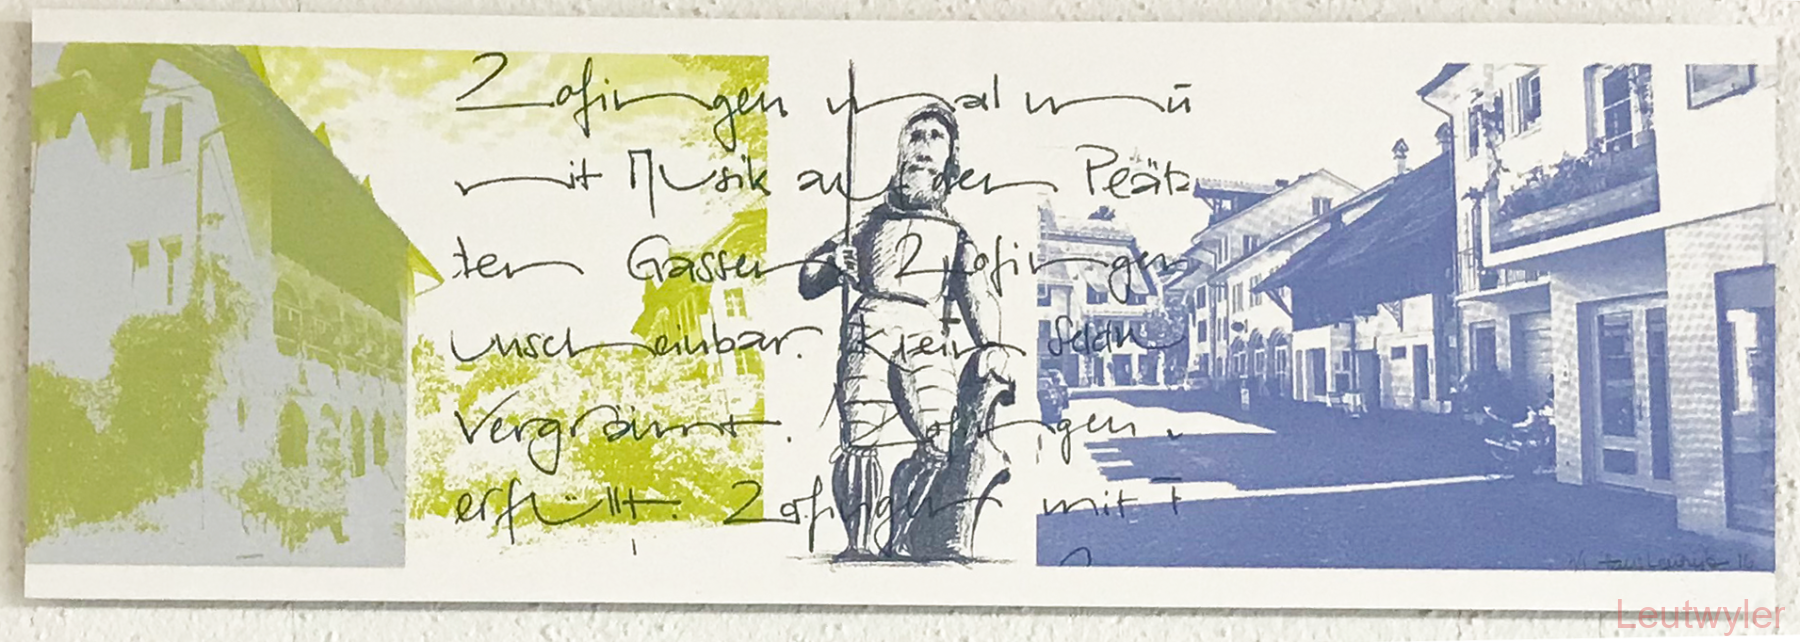 Zofingen mal
mit Musik auf den
ten Gassen Zofingen
unscheinbar. Klein
Vergrämt. Zofingen.
erfüllt. Zofingen mit
16
Leutwyler